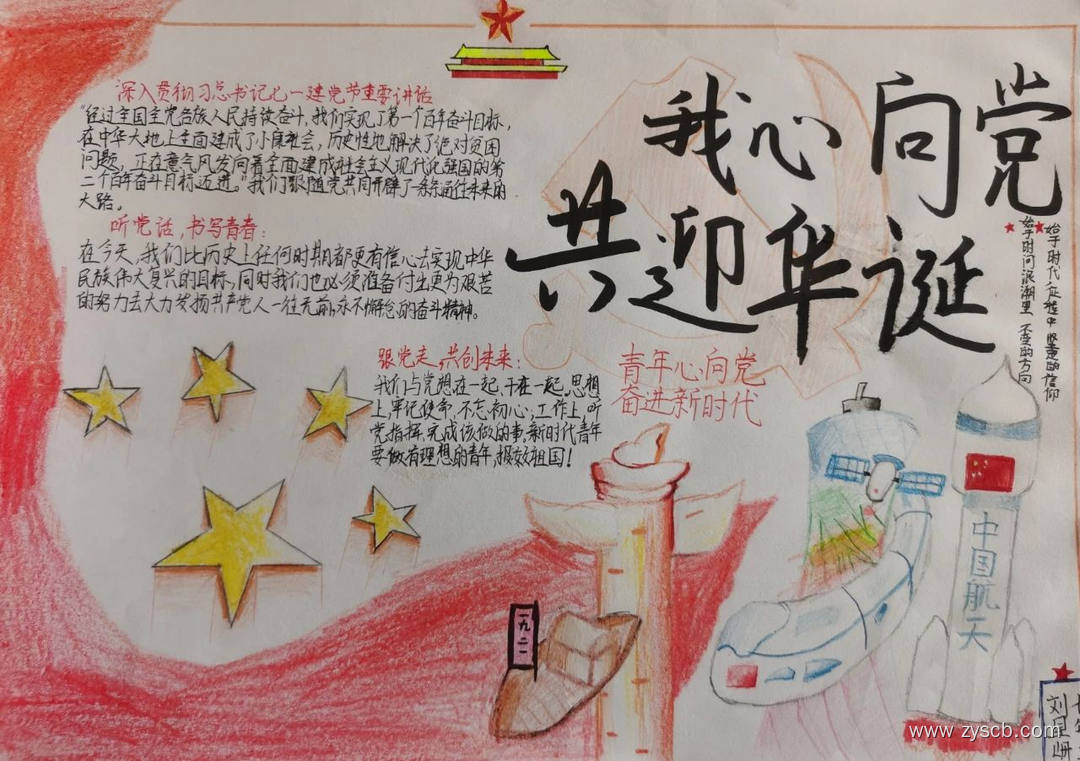 深入贯彻习总书记七一建党节重要讲话
"经过全国全党各族人民持续奋斗,我们实现了第一个百年奋斗目标,
在中华大地上全面建成了小康社会,历史性地解决了绝对贫困
问题,正在意气风发向着全面建成社会主义现代化强国的第
二个百年奋斗目标迈进。"我们跟随党共同开辟了一条通往未来的
大路。
听党话,书写青春:
在今天,我们比历史上任何时期都更有信心去实现中华
民族伟大复兴的目标,同时我们也必须准备付出更为艰苦
的努力去大力发扬共产党人一往无前,永不懈怠的奋斗精神。
跟党走,共创未来:
我们与党想在一起,干在一起,思想
上,牢记使命,不忘初心,工作上,听
党指挥,完成该做的事,新时代青年
要做有理想的青年,报效祖国!
我心向党
共迎华诞
始于时代征程中 坚贞的信仰
始于时间浪潮里 不变的方向
青年心向党
奋进新时代
一九二一
中国航天
www.zyscb.com